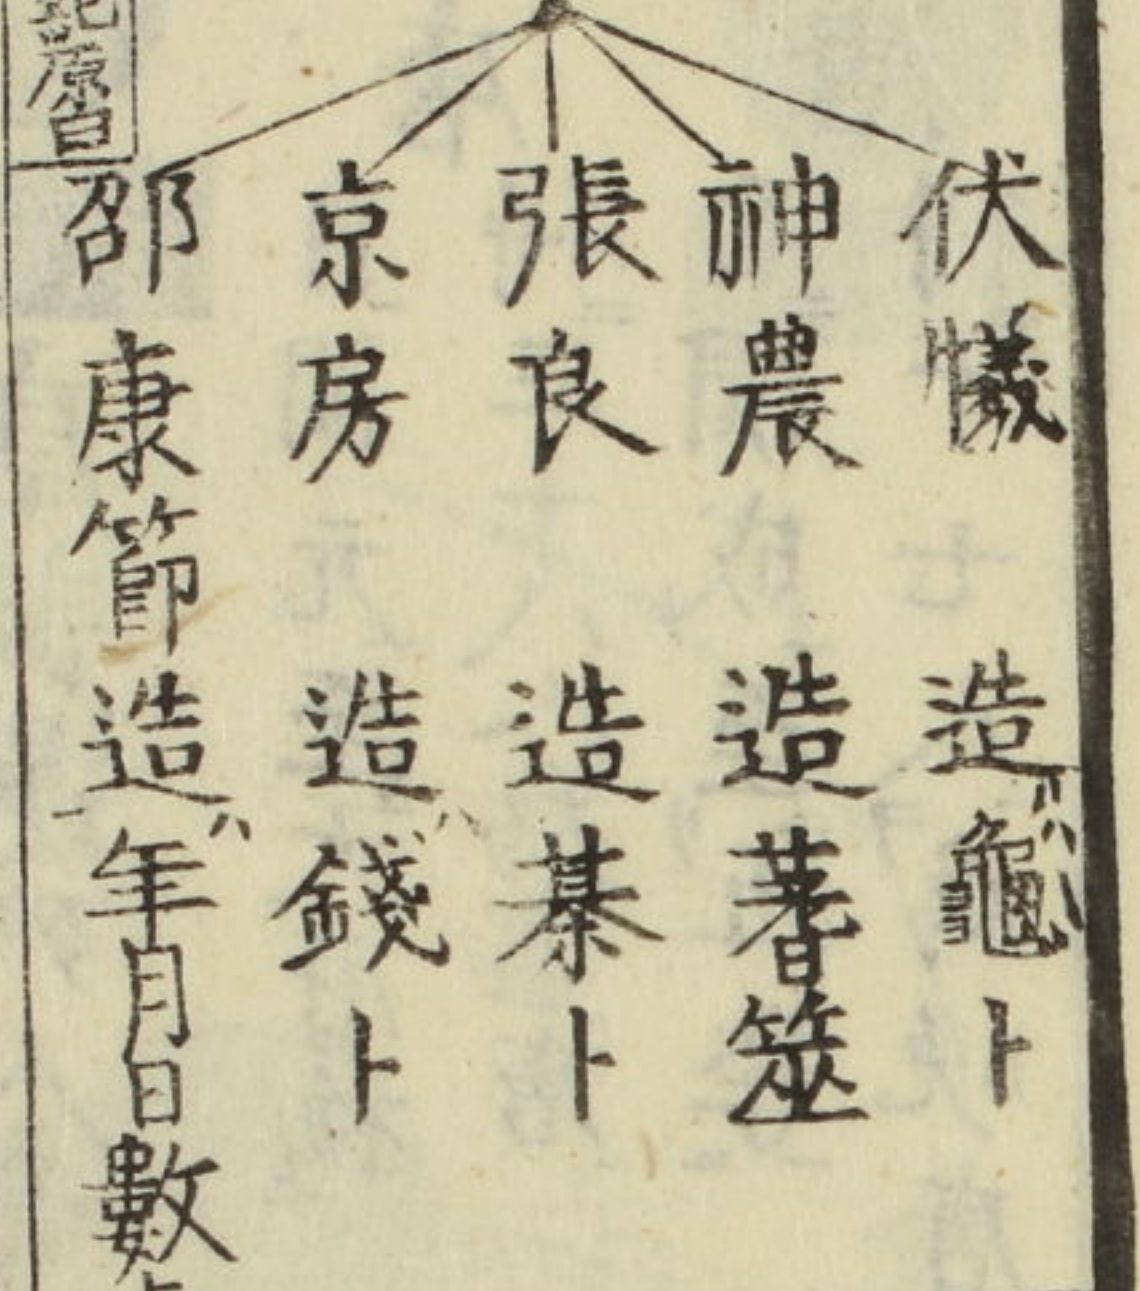 伏犧 造龜卜
神農 造蓍筮
張良 造棊卜
京房 造錢卜
邵康節造年月日數
原白